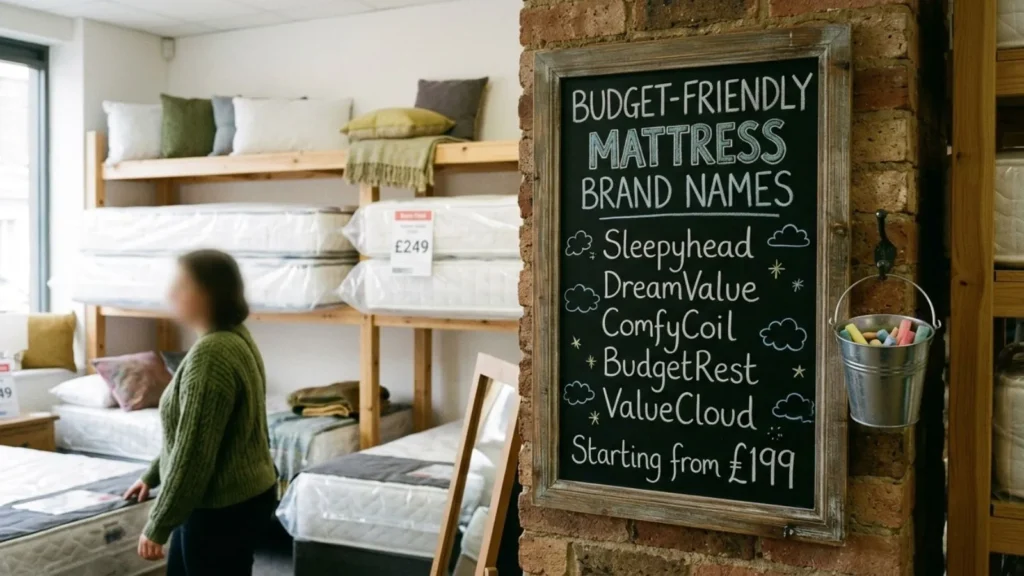 BUDGET-FRIENDLY
MATTRESS
BRAND NAMES
Sleepyhead
DreamValue
ComfyCoil
BudgetRest
ValueCloud
Starting from £199
£249
49